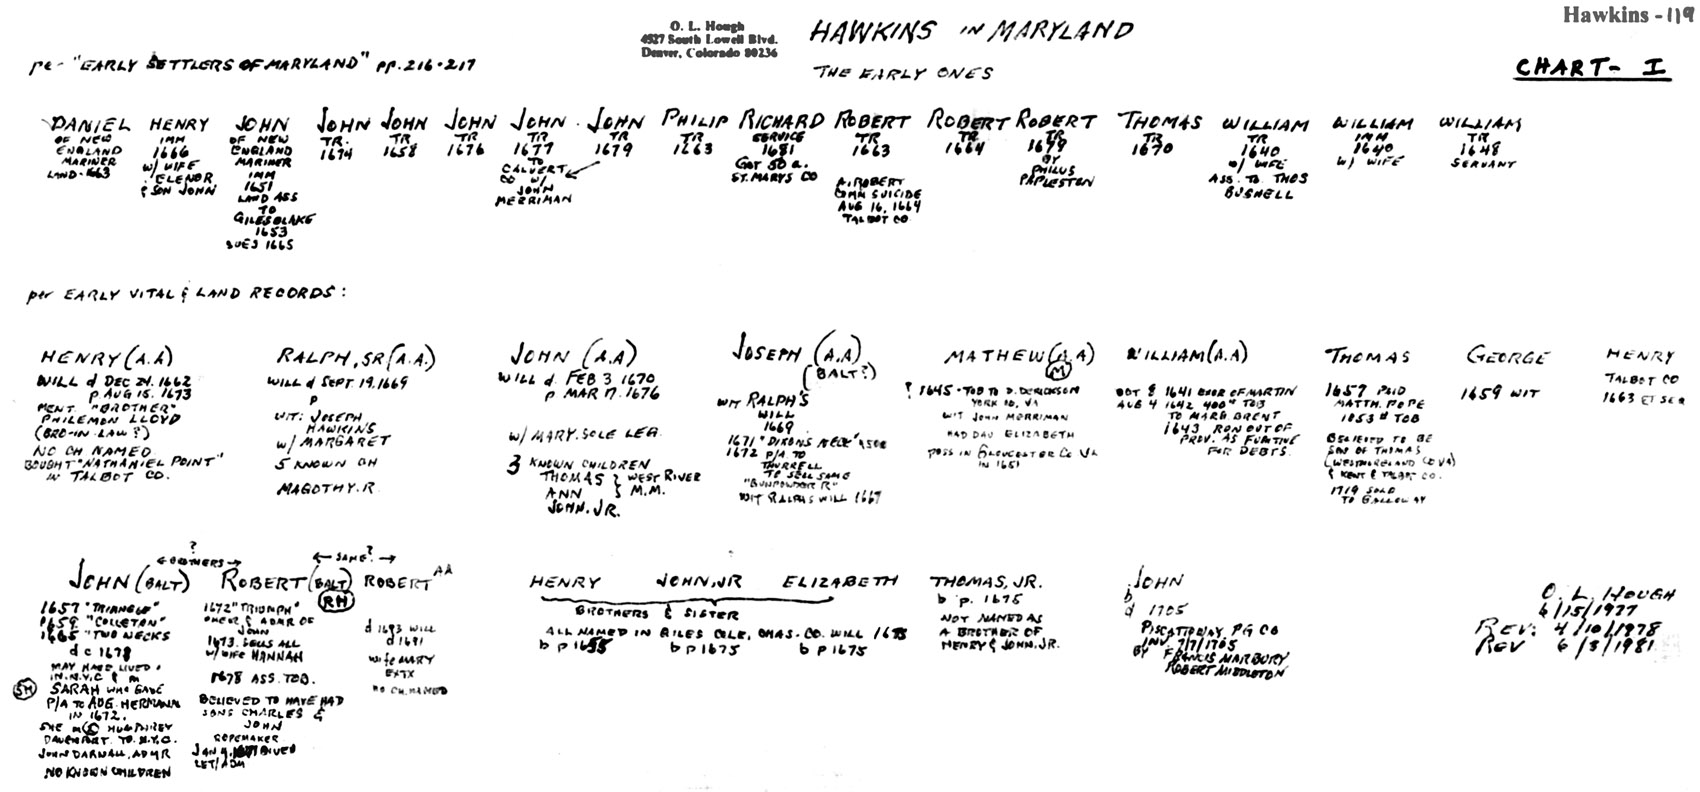 Hawkins - 119
O. L. Hough
4527 South Lowell Blvd.
Denver, Colorado 80236
HAWKINS IN MARYLAND
THE EARLY ONES
CHART - I
per "EARLY SETTLERS OF MARYLAND" pp. 216-217
DANIEL
OF NEW
ENGLAND
MARINER
LAND - 1663
HENRY
IMM
1666
w/ WIFE
ELENOR
& SON JOHN
JOHN
OF NEW
ENGLAND
MARINER
IMM
1651
LAND ASS
TO
GILES BLAKE
1653
SUES 1665
JOHN
TR.
1674
JOHN
TR.
1658
JOHN
TR
1676
JOHN
TR
1677
TO
CALVERT
CO w/
JOHN
MERRIMAN
JOHN
TR
1679
PHILIP
TR
1663
RICHARD
SERVICE
1681
GOT 50 a.
ST. MARYS CO
ROBERT
TR
1663
A. ROBERT
COMM SUICIDE
AUG 16, 1664
TALBOT CO
ROBERT
TR
1664
ROBERT
TR
1679
BY
PHILUS
PAPLESTON
THOMAS
TR
1670
WILLIAM
TR
1640
w/ WIFE
ASS. TO THOS
BUSHELL
WILLIAM
IMM
1640
w/ WIFE
WILLIAM
TR
1648
SERVANT
per EARLY VITAL & LAND RECORDS:
HENRY (A.A)
WILL d DEC 24. 1662
p AUG 15. 1673
MENT. "BROTHER"
PHILEMON LLOYD
(BRO-IN-LAW?)
NO CH NAMED
BOUGHT "NATHANIEL POINT"
IN TALBOT CO.
RALPH, SR (A.A.)
WILL d SEPT. 19. 1669
p
WIT: JOSEPH
HAWKINS
w/ MARGARET
5 KNOWN CH
MAGOTHY. R.
JOHN (A.A)
WILL d. FEB 3 1670
p MAR 17. 1676
w/ MARY. SOLE LEG.
3 KNOWN CHILDREN
THOMAS } WEST RIVER
ANN } M.M.
JOHN. JR.
JOSEPH (A.A)
(BALT?)
WIT RALPH'S
WILL
1669
1671 "DIXONS NECK"
1672 P/A TO
THURRELL
TO SELL SAME
"GUNPOWDER R"
WIT RALPHS WILL 1667
MATHEW (A.A)
M
? 1645 - TOB TO D. DERICKSON
YORK CO, VA
WIT JOHN MERRIMAN
HAD DAU ELIZABETH
POSS IN GLOUCESTER CO VA
IN 1651
WILLIAM (A.A)
OCT 8 1641 EXOR OF MARTIN
AUG 4 1642 400# TOB
TO MARG. BRENT
1643 RUN OUT OF
PROV. AS FUGITIVE
FOR DEBTS.
THOMAS
1657 PAID
MATTH. POPE
1053 # TOB
BELIEVED TO BE
SON OF THOMAS
(WESTMORELAND CO VA)
& KENT & TALBOT CO.
1719 SOLD
TO GALLOWAY
GEORGE
1659 WIT
HENRY
TALBOT CO
1663 ET SEQ
?
← BROTHERS →
← SAME? →
JOHN (BALT)
1657 "TRIANGLE"
1659 "COLLETAN"
1665 "TWO NECKS
d c 1678
MAY HAVE LIVED
IN. N.Y.C & m
SM SARAH WHO GAVE
P/A TO AUG. HERMANN
IN 1672.
SHE m HUMPHREY
DAVENPORT. TO. N.Y.C.
JOHN DARNALL, ADMR
NO KNOWN CHILDREN
ROBERT (BALT)
RH
1672 "TRIUMPH"
ADMR OF
JOHN
1673. SELLS ALL
w/ WIFE HANNAH
1678 ASS. TOB.
BELIEVED TO HAVE HAD
SONS CHARLES &
JOHN
ROPEMAKER
LET/ADM
ROBERT AA
d 1693 WILL
d 1691
wife MARY
EXTX
NO CH. NAMED
HENRY JOHN, JR ELIZABETH
BROTHERS & SISTER
ALL NAMED IN GILES COLE, CHAS. CO. WILL 1675
b p 1655 b p 1675 b p 1675
THOMAS, JR.
b p. 1675
NOT NAMED AS
A BROTHER OF
HENRY & JOHN, JR.
JOHN
b
d 1705
PISCATTOWAY, PG CO
INV. 7/7/1705
BY FRANCIS MARBURY
ROBERT MIDDLETON
O. L. HOUGH
6/15/1977
REV: 4/10/1978
REV 6/3/1981